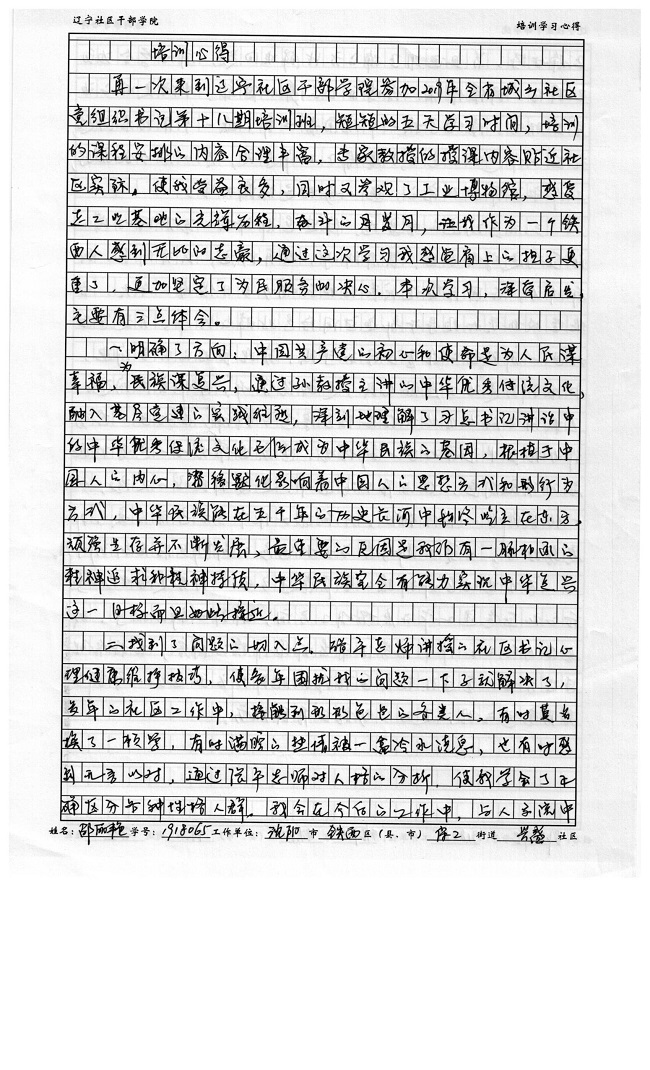 辽宁社区干部学院 培训学习心得
培训心得
再一次来到辽宁社区干部学院参加2019年全省城乡社区
党组织书记第十八期培训班，短短的五天学习时间，培训
的课程安排的内容合理丰富，专家教授的授课内容贴近社
区实际。使我受益良多，同时又参观了工业博物馆，感受
老工业基地的光辉历程，奋斗的岁月，让我作为一个铁
西人感到无比的自豪，通过这次学习我感觉肩上的担子更
重了，更加坚定了为民服务的决心。本次学习，深受启发，
主要有三点体会。
一、明确了方向：中国共产党的初心和使命是为人民谋
幸福，为民族谋复兴，通过孙教授主讲的中华优秀传统文化，
融入基层党建的实践经验，深刻地理解了习总书记讲话中
的中华优秀传统文化已经成为中华民族的基因，根植于中
国人的内心，潜移默化影响着中国人的思想方式和行为
方式，中华民族能在五千年的历史长河中始终屹立在东方，
顽强生存并不断发展，最重要的原因是我们有一脉相承的
精神追求和精神特质，中华民族完全有能力实现中华复兴
这一目标而且如此接近。
二、找到了问题的切入点。 老师讲授的社区书记心
理健康维护技巧，使多年困扰我的问题一下子就解决了，
多年的社区工作中，接触到形形色色的各类人，有时莫名
挨了一顿骂，有时满腔的热情被一盆冷水浇息，也有时感
到无言以对，通过 老师对人格的分析，使我学会了正
确区分各种性格人群。我会在今后的工作中，与人交流中
姓名：邵丽艳 学号：1918065 工作单位：沈阳 市 铁西 区（县、市） 保工 街道 社区